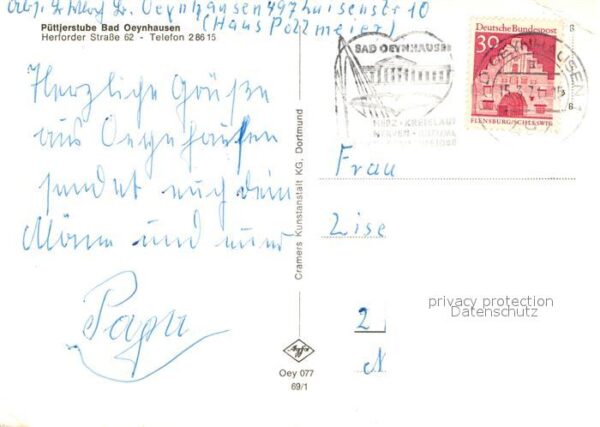 Oeynhausen 497 Luisenstr 10
(Haus Pollmeier)
Püttjerstube Bad Oeynhausen
Herforder Straße 62 - Telefon 28615
Herzliche Grüße
aus Oeynhausen
sendet euch dein
Mann und unser
Papa
Cramers Kunstanstalt KG, Dortmund
Agfa
Oey 077
69/1
BAD OEYNHAUSEN
HERZ · KREISLAUF
NERVEN
Deutsche Bundespost
30
FLENSBURG/SCHLESWIG
OEYNHAUSEN
Frau
Lise
2
N
privacy protection
Datenschutz